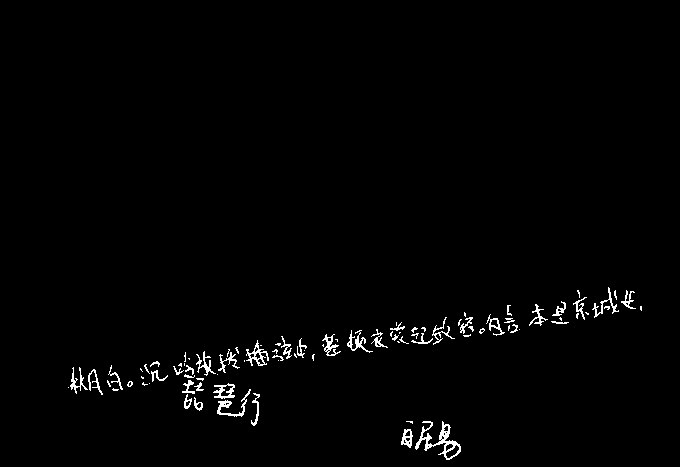 秋月白。沉吟放拨插弦中,整顿衣裳起敛容。自言本是京城女,
琵琶行
白居易